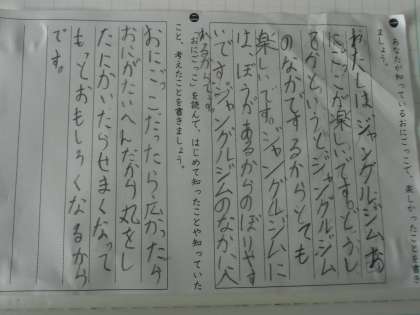 一 あなたが知っているおにごっこで、楽しかったことを書き
ましょう。
わたしは、ジャングルジムお
にごっこが楽しいです。どうし
てかというとジャングルジム
のなかでするからとても
楽しいです。ジャングルジムに
は、ぼうがあるからのぼりやす
いです。ジャングルジムのなかに入
れるからです。
二 「おにごっこ」を読んで、はじめて知ったことや知っていた
こと、考えたことを書きましょう。
おにごっこだったら広かったら
おにがたいへんだから丸をし
たにかいたらせまくなって
もっとおもしろくなるから
です。